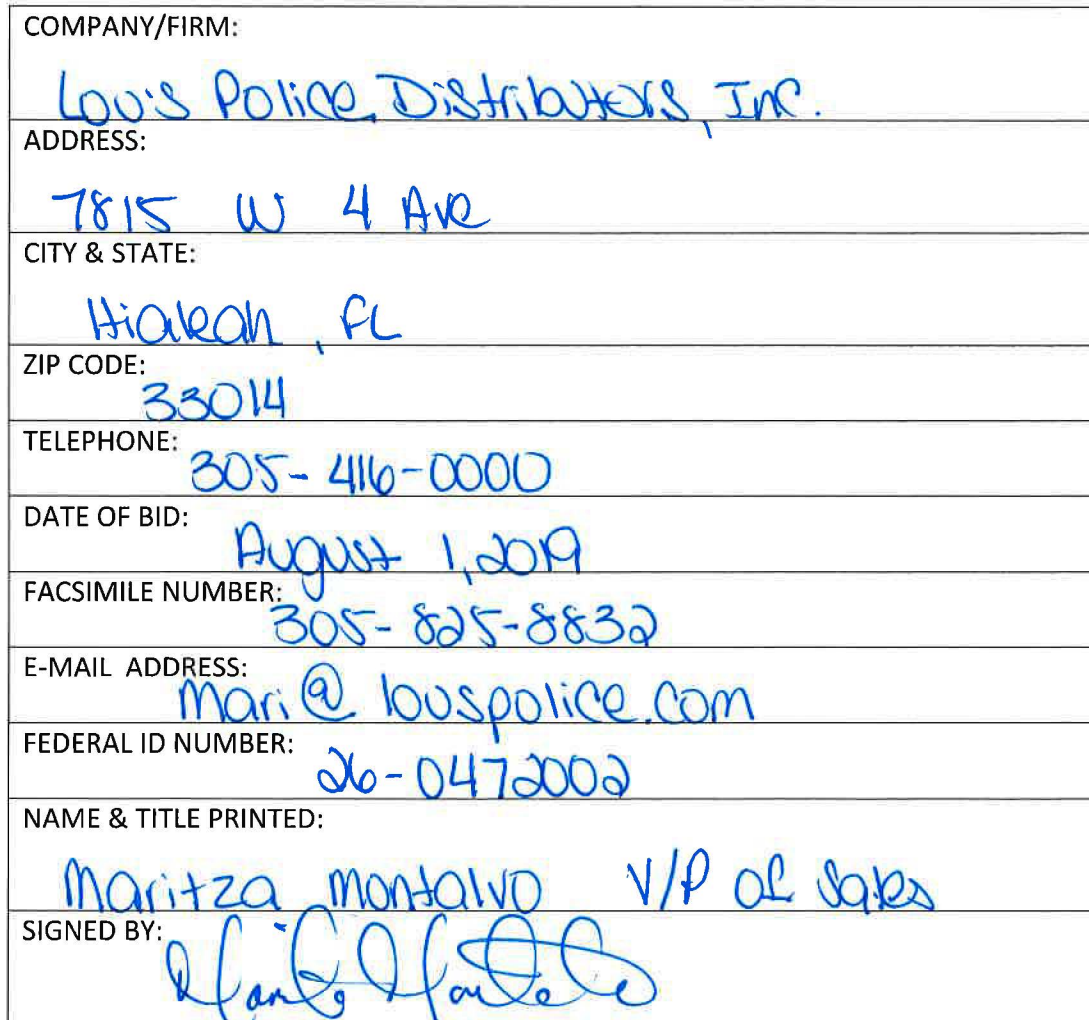 COMPANY/FIRM:
Lou's Police Distributors, Inc.
ADDRESS:
7815 W 4 Ave
CITY & STATE:
Hialeah, FL
ZIP CODE:
33014
TELEPHONE:
305-416-0000
DATE OF BID:
August 1, 2019
FACSIMILE NUMBER:
305-825-8832
E-MAIL ADDRESS:
Mari@louspolice.com
FEDERAL ID NUMBER:
26-0472002
NAME & TITLE PRINTED:
Maritza Montalvo V/P of Sales
SIGNED BY: